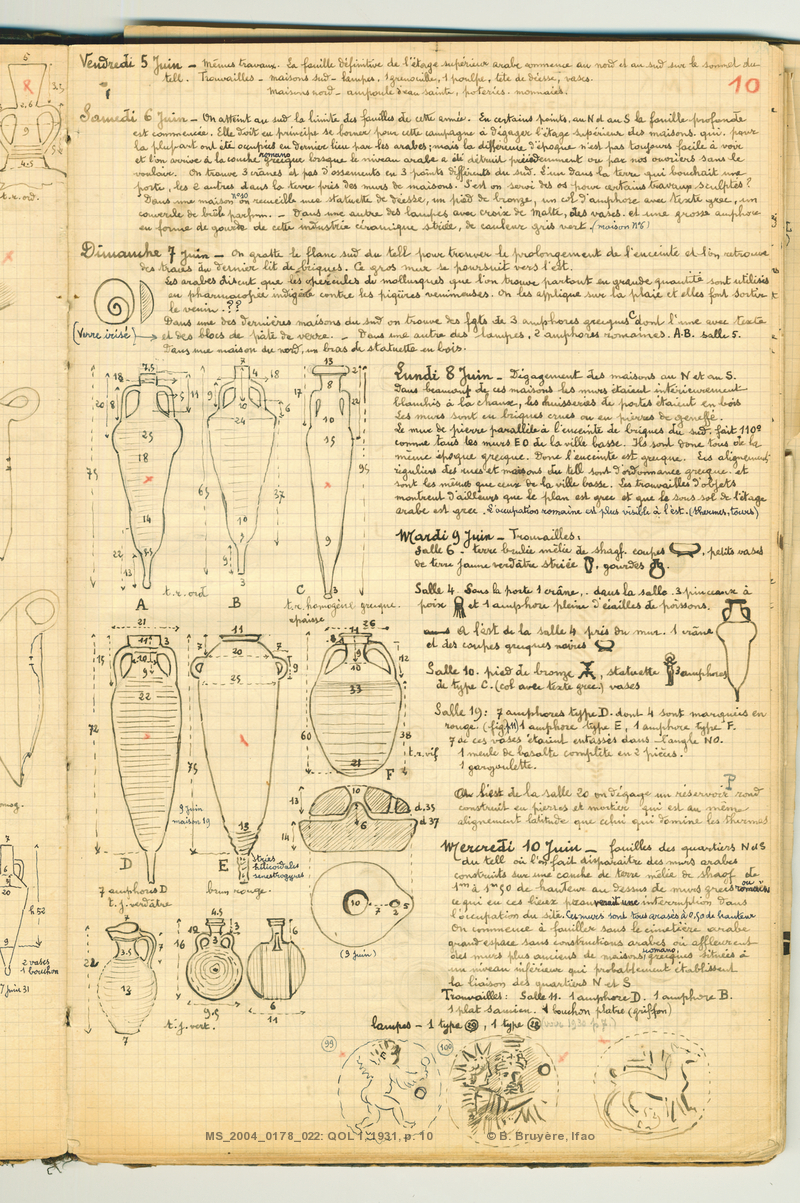 10
Vendredi 5 Juin - Mêmes travaux. La fouille définitive de l'étage supérieur arabe commence au nord et au sud sur le sommet du
tell. Trouvailles - maisons sud - lampes, 1 grenouille, 1 poulpe, tête de déesse, vases.
Maisons nord - ampoule d'eau sainte, poteries. monnaies.
Samedi 6 Juin - On atteint au sud la limite des fouilles de cette année. En certains points, au N et au S la fouille profonde
est commencée. Elle doit en principe se borner pour cette campagne à dégager l'étage supérieur des maisons. qui. pour
la plupart ont été occupées en dernier lieu par les arabes; mais la différence d'époque n'est pas toujours facile à voir
et l'on arrive à la couche romano grecque lorsque le niveau arabe a été détruit précédemment ou par nos ouvriers sans le
vouloir. On trouve 3 crânes et pas d'ossements en 3 points différents du sud. L'un dans la terre qui bouchait une
porte, les 2 autres dans la terre près des murs de maisons. S'est on servi des os pour certains travaux sculptés?
Dans une maison n°10 on recueille une statuette de déesse, un pied de bronze, un col d'amphore avec texte grec, un
couvercle de brûle parfum. - Dans une autre des lampes avec croix de Malte, des vases. et une grosse amphore
en forme de gourde de cette industrie céramique striée, de couleur gris vert (maison N°6)
Dimanche 7 Juin - On gratte le flanc sud du tell pour trouver le prolongement de l'enceinte et l'on retrouve
des traces du dernier lit de briques. Ce gros mur se poursuit vers l'est.
Les arabes disent que les opercules de mollusques que l'on trouve partout en grande quantité sont utilisés
en pharmacopée indigène contre les piqûres venimeuses. On les applique sur la plaie et elles font sortir
le venin. ??
(Verre irisé)
Dans une des dernières maisons du sud on trouve des fgts de 3 amphores grecques C dont l'une avec texte
et des blocs de pâte de verre. - Dans une autre des lampes, 2 amphores romaines. A.B. salle 5.
Dans une maison du nord, un bras de statuette en bois.
Lundi 8 Juin - Dégagement des maisons au N et au S.
Dans beaucoup de ces maisons les murs étaient intérieurement
blanchis à la chaux, les huisseries de portes étaient en bois
Les murs sont en briques crues ou en pierres de geneffé.
Le mur de pierre parallèle à l'enceinte de briques du sud. fait 110°
comme tous les murs EO de la ville basse. Ils sont donc tous de la
même époque grecque. Donc l'enceinte est grecque. Les alignements
réguliers des rues et maisons du tell sont d'ordonnance grecque. et
sont les mêmes que ceux de la ville basse. Les trouvailles d'objets
montrent d'ailleurs que le plan est grec et que le sous-sol de l'étage
arabe est grec. L'occupation romaine est plus visible à l'est. (thermes, tours)
A
t.r.ord
B
C
t.r. homogène grecque.
épaisse
Mardi 9 Juin - Trouvailles:
Salle 6 - terre brulée mêlée de shagf. coupes, petits vases
de terre jaune verdâtre striée, gourdes.
Salle 4 Sous la porte 1 crâne,. dans la salle. 3 pinceaux à
poix et 1 amphore pleine d'écailles de poissons.
A l'est de la salle 4 près du mur. 1 crâne
et des coupes grecques noires
Salle 10. pied de bronze, statuette 3 amphores
de type C. (col avec texte grec) vases
Salle 19: 7 amphores type D. dont 4 sont marquées en
rouge. 1 amphore type E, 1 amphore type F.
7 de ces vases étaient entassés dans l'angle NO.
1 meule de basalte complète en 2 pièces.
1 gargoulette.
P
Au S. est de la salle 20 on dégage un réservoir rond
construit en pierres et mortier qui est au même
alignement latitude que celui qui domine les thermes
D
7 amphores D
t.j. verdâtre
9 Juin
maison 19
E
brun rouge.
Stries
hélicoïdales
senestrogyres
F
t.r. vif
d.35
d 37
(9 Juin)
t.j. vert.
Mercredi 10 Juin - fouilles des quartiers N et S
du tell où l'on fait disparaître des murs arabes
construits sur une couche de terre mêlée de shagf de
1m à 1m50 de hauteur au dessus de murs grecs ou romains
ce qui en ces lieux prouverait une interruption dans
l'occupation du site. Ces murs sont tous arasés à 0,50 de hauteur
On commence à fouiller sous le cimetière arabe
grand espace sans constructions arabes où affleurent
des murs plus anciens de maisons romano grecques situées à
un niveau inférieur qui probablement établissent
la liaison des quartiers N et S
Trouvailles: Salle 11. 1 amphore D. 1 amphore B.
1 plat samien. 1 bouchon platre (griffon)
lampes - 1 type 99, 1 type 28
99
100
t.r.ord.
2 vases
1 bouchon
7 Juin 31
MS_2004_0178_022: QOL 1, 1931, p. 10 © B. Bruyère, Ifao